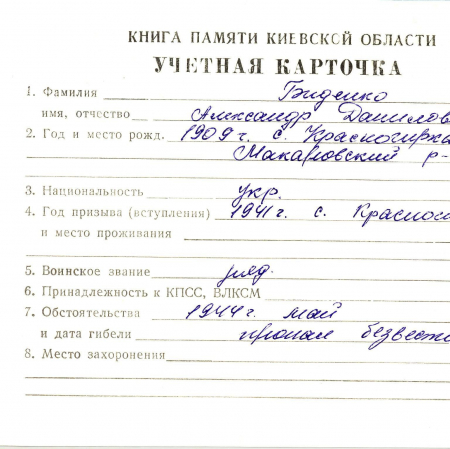 КНИГА ПАМЯТИ КИЕВСКОЙ ОБЛАСТИ
УЧЕТНАЯ КАРТОЧКА
1. Фамилия Биденко
имя, отчество Александр Данилов
2. Год и место рожд. 1909г. с.
Макаровский р-
3. Национальность укр.
4. Год призыва (вступления) 1941г. с.
и место проживания
5. Воинское звание ряд.
6. Принадлежность к КПСС, ВЛКСМ
7. Обстоятельства 1944г. май
и дата гибели пропал безвестно
8. Место захоронения